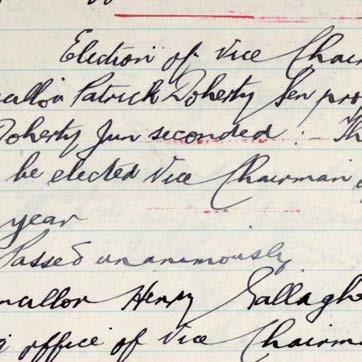 Election of Vice Chair
cillor Patrick Doherty Sen pro
Doherty Jun seconded :- Th
be elected Vice Chairman
year
Passed unanimously
ncillor Henry Gallagh
office of Vice Chairm